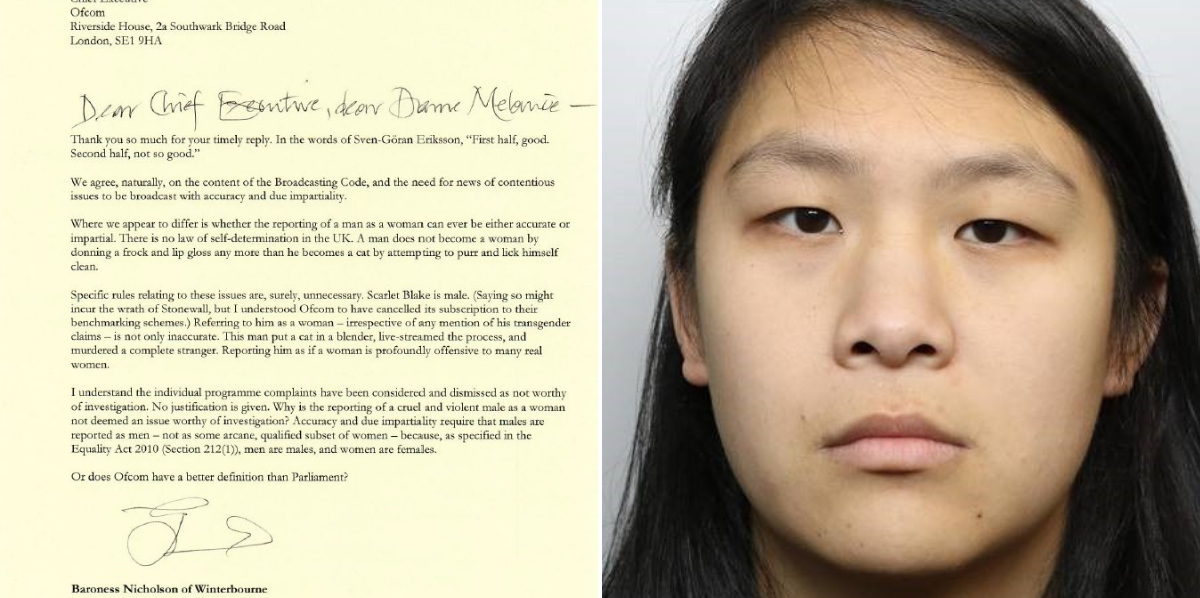 Chief Executive
Ofcom
Riverside House, 2a Southwark Bridge Road
London, SE1 9HA
Dear Chief Executive, dear Dame Melanie —
Thank you so much for your timely reply. In the words of Sven-Göran Eriksson, “First half, good.
Second half, not so good.”
We agree, naturally, on the content of the Broadcasting Code, and the need for news of contentious
issues to be broadcast with accuracy and due impartiality.
Where we appear to differ is whether the reporting of a man as a woman can ever be either accurate or
impartial. There is no law of self-determination in the UK. A man does not become a woman by
donning a frock and lip gloss any more than he becomes a cat by attempting to purr and lick himself
clean.
Specific rules relating to these issues are, surely, unnecessary. Scarlet Blake is male. (Saying so might
incur the wrath of Stonewall, but I understood Ofcom to have cancelled its subscription to their
benchmarking schemes.) Referring to him as a woman – irrespective of any mention of his transgender
claims – is not only inaccurate. This man put a cat in a blender, live-streamed the process, and
murdered a complete stranger. Reporting him as if a woman is profoundly offensive to many real
women.
I understand the individual programme complaints have been considered and dismissed as not worthy
of investigation. No justification is given. Why is the reporting of a cruel and violent male as a woman
not deemed an issue worthy of investigation? Accuracy and due impartiality require that males are
reported as men – not as some arcane, qualified subset of women – because, as specified in the
Equality Act 2010 (Section 212(1)), men are males, and women are females.
Or does Ofcom have a better definition than Parliament?
Baroness Nicholson of Winterbourne